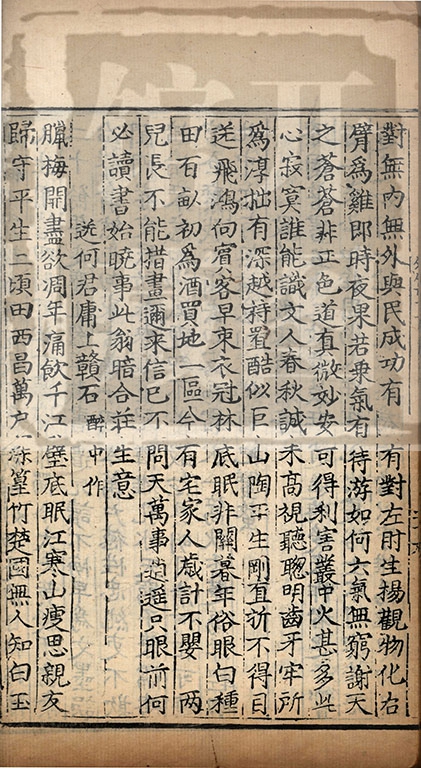 對無内無外與民成功有有對左肘生楊觀物化右
臂爲雞即時夜果若乗氣有待游如何六氣無窮謝天
之蒼蒼非正色道真微妙安可得利害叢中火甚多此
心寂寞誰能識文人春秋誠未高視聽聰明齒牙牢所
爲淳拙有深越置酷似巨山陶平生剛直折不得目
送飛鴻向賓客早束衣冠林底眠非關暮年俗眼白種
田百畝初爲酒買地一區今有宅家人歲計不嬰兩
兒長不能措畫邇來信已不問天萬事逍遥只眼前何
必讀書始曉事此翁暗合莊生意
送何君庸上贛石 醉中作
臘梅開盡欲凋年痛飲千江壁底眠江寒山瘦思親友
歸守平生二頃田西昌萬户篁竹楚國無人知白玉